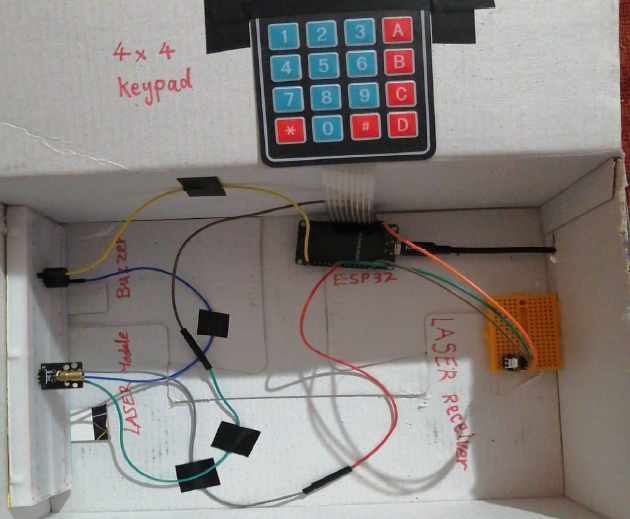 4 x 4
Keypad
1 2 3 A
4 5 6 B
7 8 9 C
* 0 # D
Buzzer
ESP32
LASER Module
LASER receiver